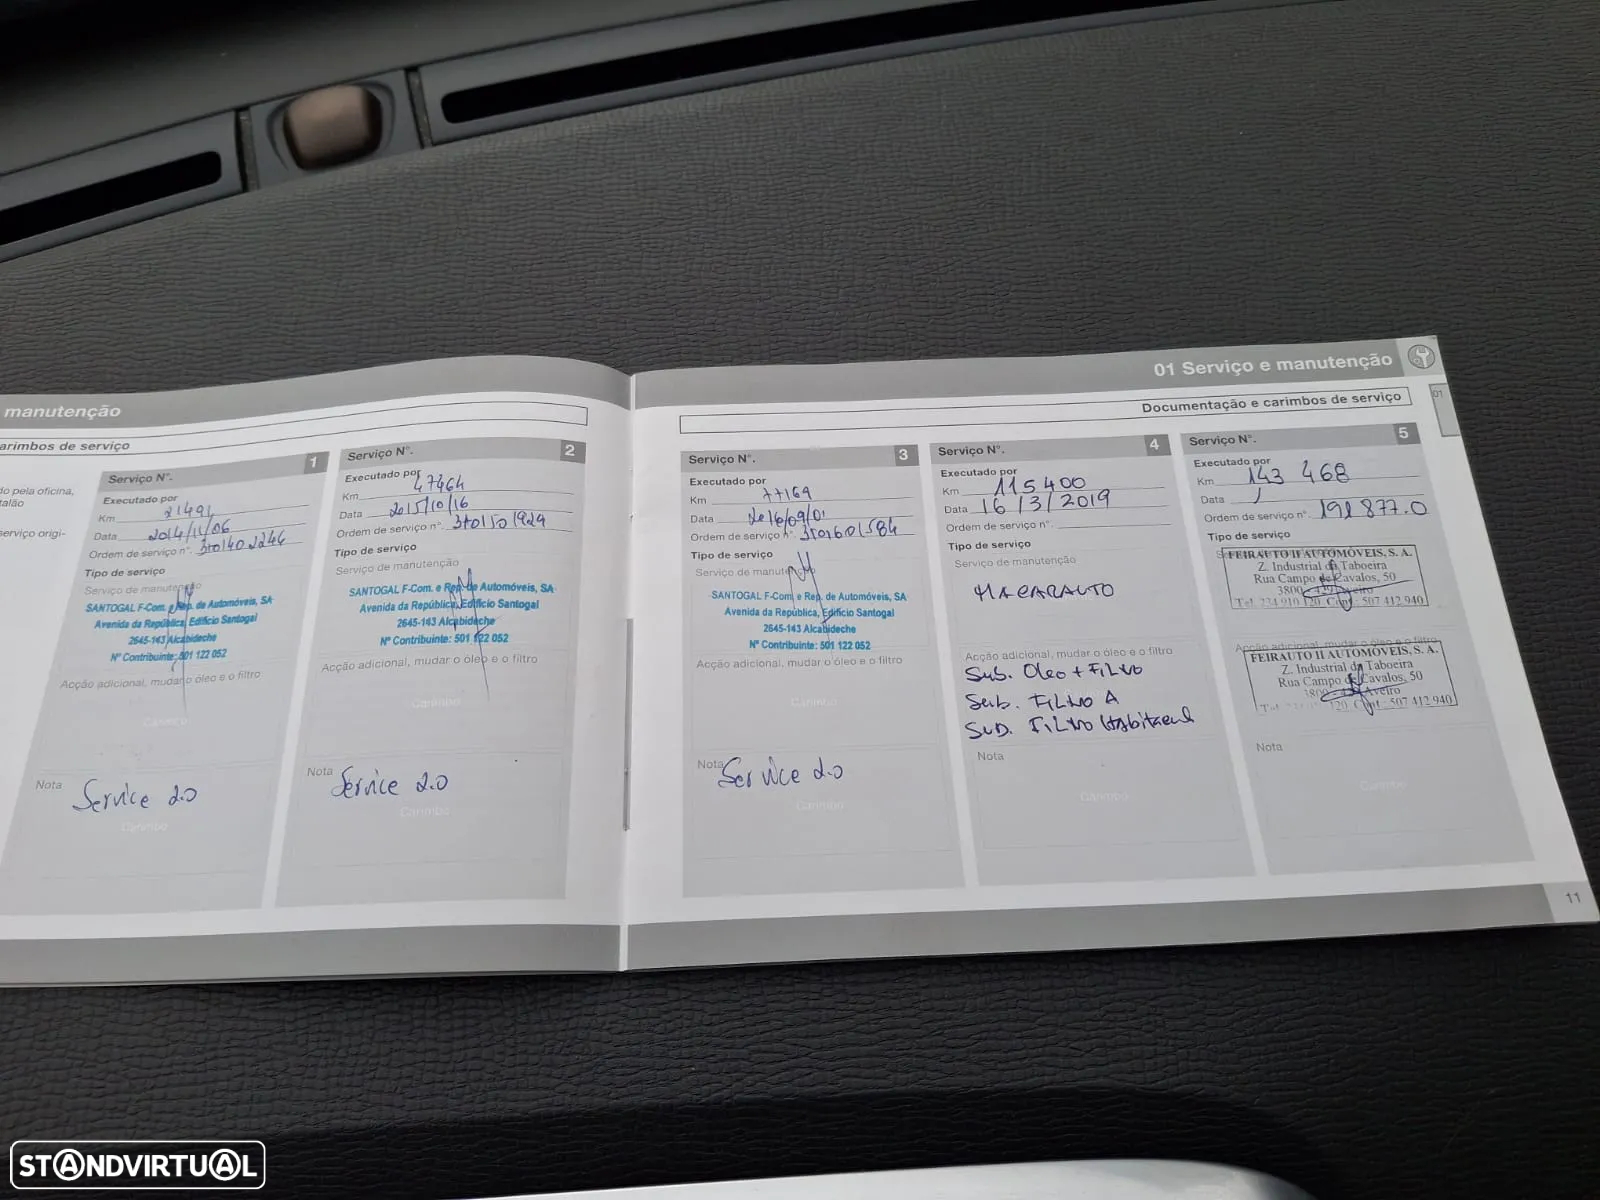 manutenção
arimbos de serviço
do pela oficina,
talão
serviço origi-
Serviço Nº. 1
Executado por
Km 21491
Data 2014/11/06
Ordem de serviço nº. 3701402246
Tipo de serviço
Serviço de manutenção
SANTOGAL F-Com. e Rep. de Automóveis, SA
Avenida da República, Edifício Santogal
2645-143 Alcabideche
Nº Contribuinte: 501 122 052
Acção adicional, mudar o óleo e o filtro
Carimbo
Nota
Service 2.0
Carimbo
Serviço Nº. 2
Executado por
Km 47464
Data 2015/10/16
Ordem de serviço nº. 3701501929
Tipo de serviço
Serviço de manutenção
SANTOGAL F-Com. e Rep. de Automóveis, SA
Avenida da República, Edifício Santogal
2645-143 Alcabideche
Nº Contribuinte: 501 122 052
Acção adicional, mudar o óleo e o filtro
Carimbo
Nota
Service 2.0
Carimbo
01 Serviço e manutenção
01
Documentação e carimbos de serviço
Serviço Nº. 3
Executado por
Km 77169
Data 2016/09/01
Ordem de serviço nº. 3501601584
Tipo de serviço
Serviço de manutenção
SANTOGAL F-Com. e Rep. de Automóveis, SA
Avenida da República, Edifício Santogal
2645-143 Alcabideche
Nº Contribuinte: 501 122 052
Acção adicional, mudar o óleo e o filtro
Carimbo
Nota
Service 2.0
Carimbo
Serviço Nº. 4
Executado por
Km 115400
Data 16/3/2019
Ordem de serviço nº.
Tipo de serviço
Serviço de manutenção
Acção adicional, mudar o óleo e o filtro
Sub. Oleo + Filtro
Sub. Filtro A
Sub. Filtro
Nota
Carimbo
Serviço Nº. 5
Executado por
Km 143 468
Data
Ordem de serviço nº. 191 877.0
Tipo de serviço
FEIRAUTO II AUTOMÓVEIS, S. A.
Z. Industrial da Taboeira
Rua Campo de Cavalos, 50
3800 Aveiro
Tel. 234 910 120 Cont. 507 412 940
Acção adicional, mudar o óleo e o filtro
FEIRAUTO II AUTOMÓVEIS, S. A.
Z. Industrial da Taboeira
Rua Campo de Cavalos, 50
3800 Aveiro
120 Cont. 507 412 940
Nota
Carimbo
11
STANDVIRTUAL